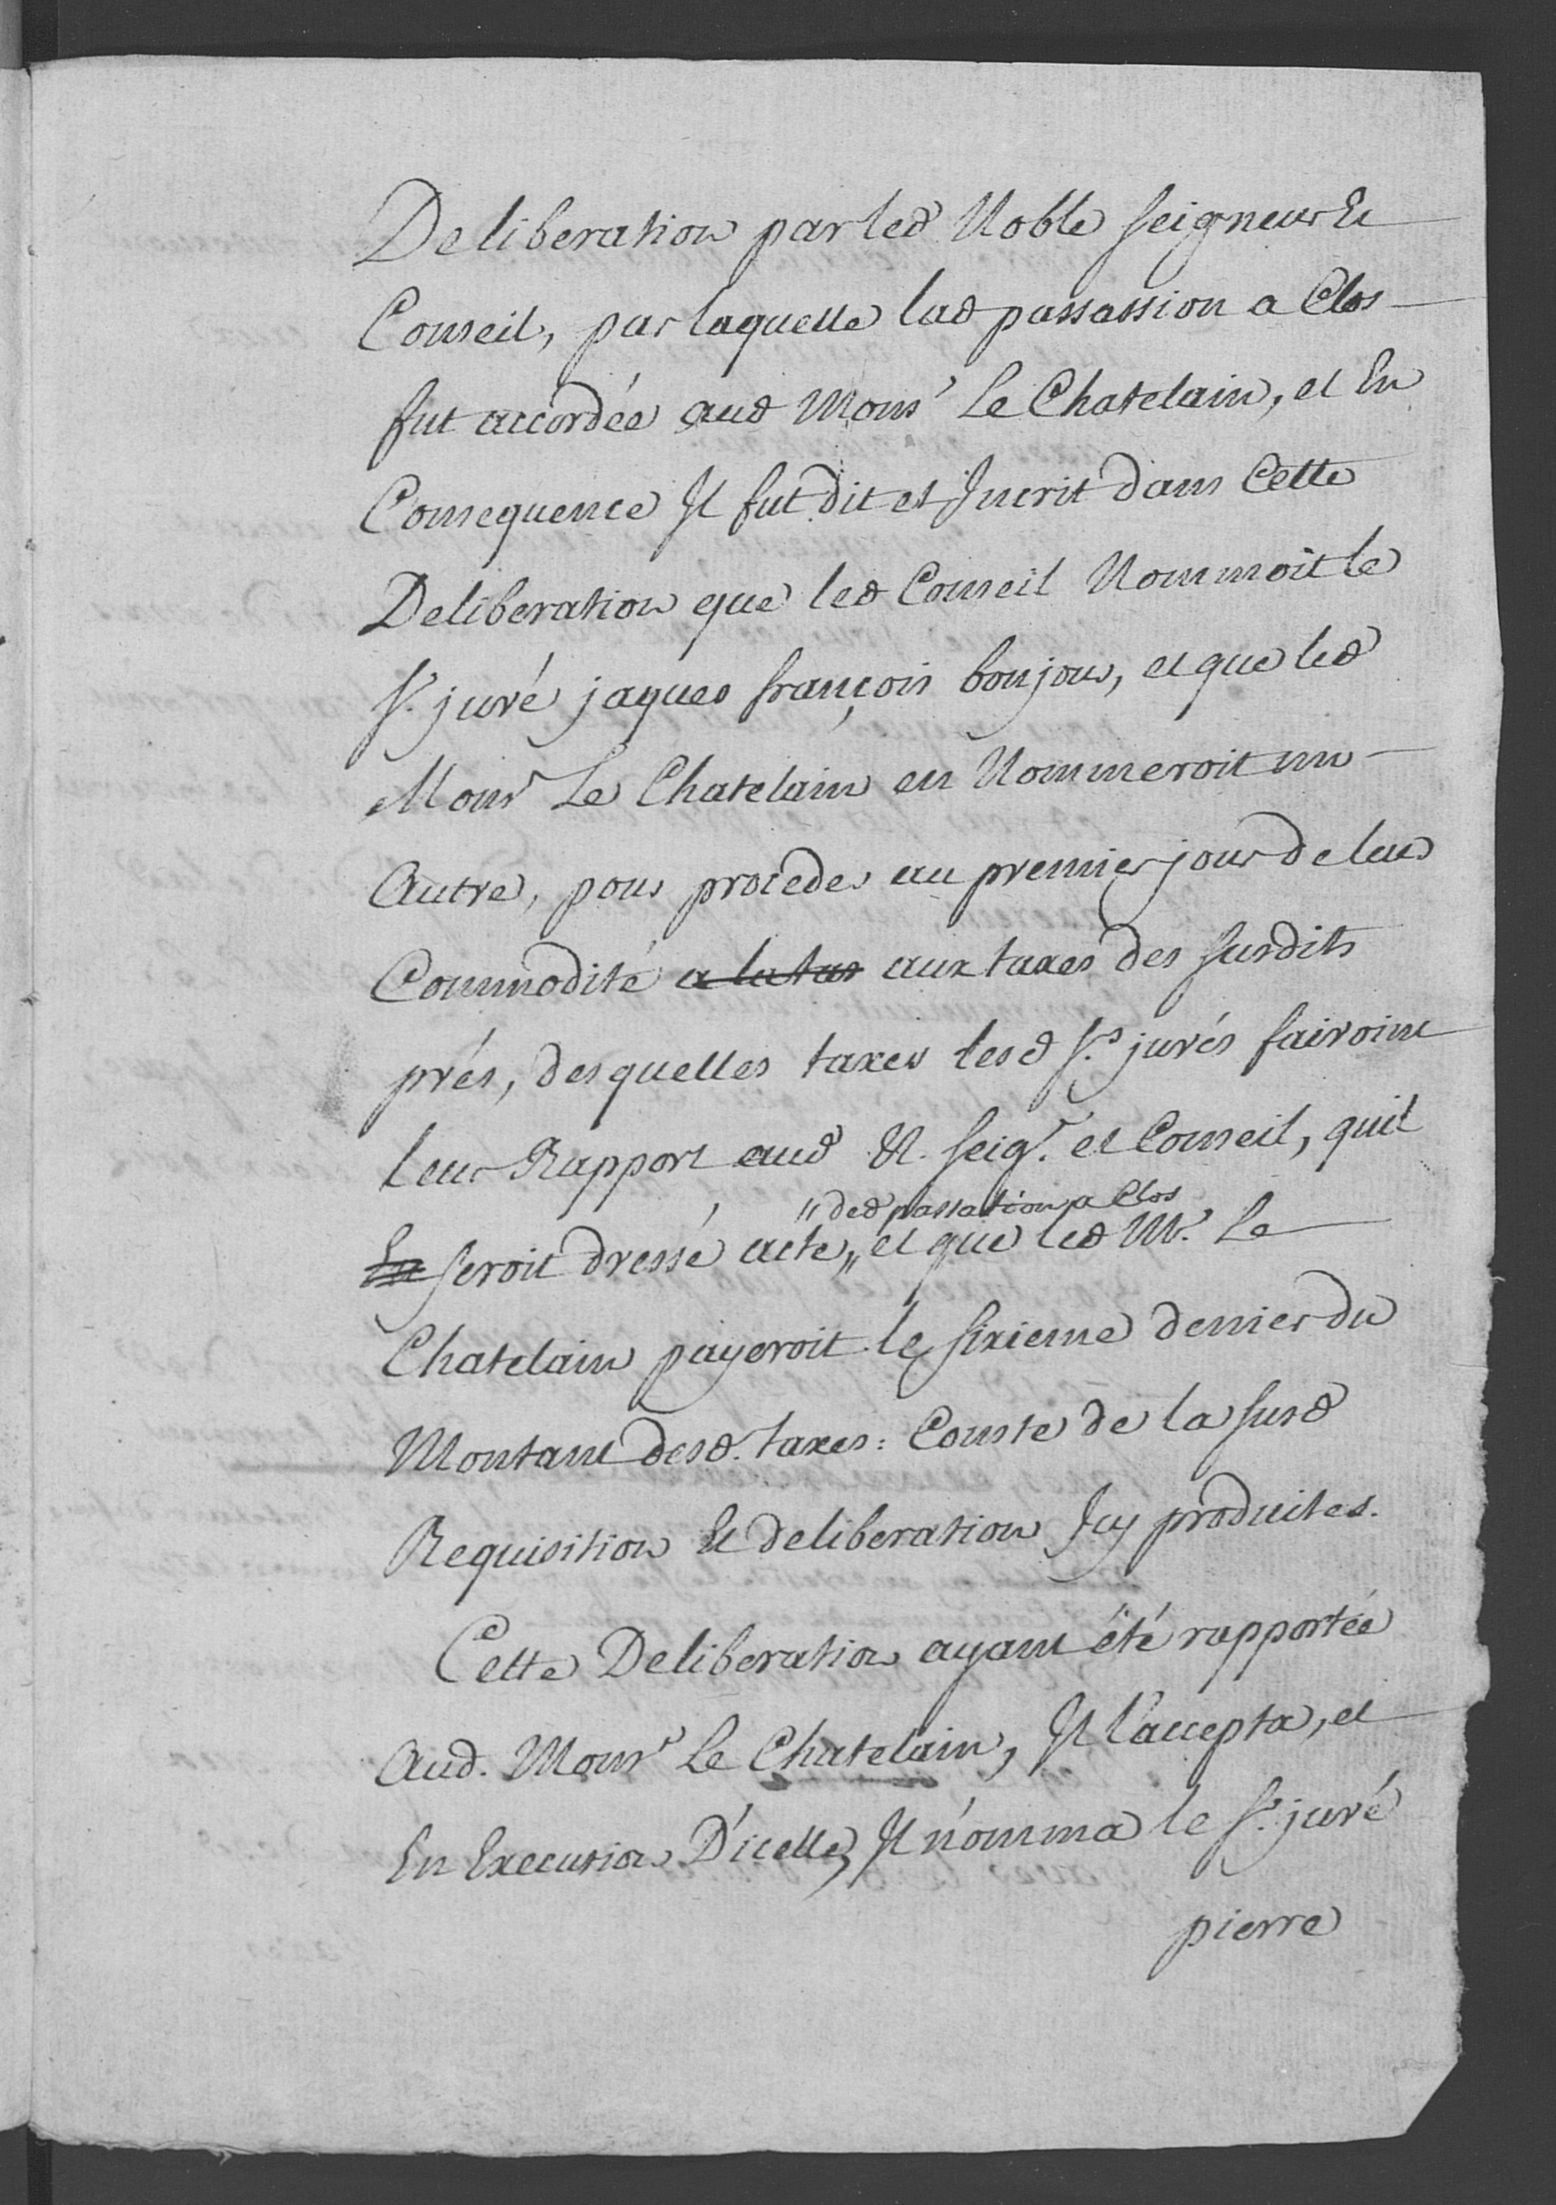 Deliberation par led Noble seigneur Et
Conseil, par laquelle lad passassion a Clos
fut accordée aud Mons.r Le Chatelain, et En
Consequence Il fut dit et Incrit dans Cette
Deliberation que led Conseil Nommoit le
S.r juré jaques françois bonjour, et que led
Mons.r Le Chatelain en Nommeroit un
Autre, pour proceder au premier jour de leur
Commodité a la tax aux taxes des susdits
prés, desquelles taxes lesd S.rs jurés fairoint
leur Rapport aud N. seig.r et Conseil, quil
"ded passation a Clos
En seroit dressé acte, " et que led M.r Le
Chatelain payeroit le sixieme denier du
Montant desd. taxes: Conste de la susd
Requisition Et deliberation Icy produites.
Cette Deliberation ayant été rapportée
Aud. Mons.r Le Chatelain, Il l'accepta, et
En Execution D'icelle, Il nomma le S.r juré
pierre